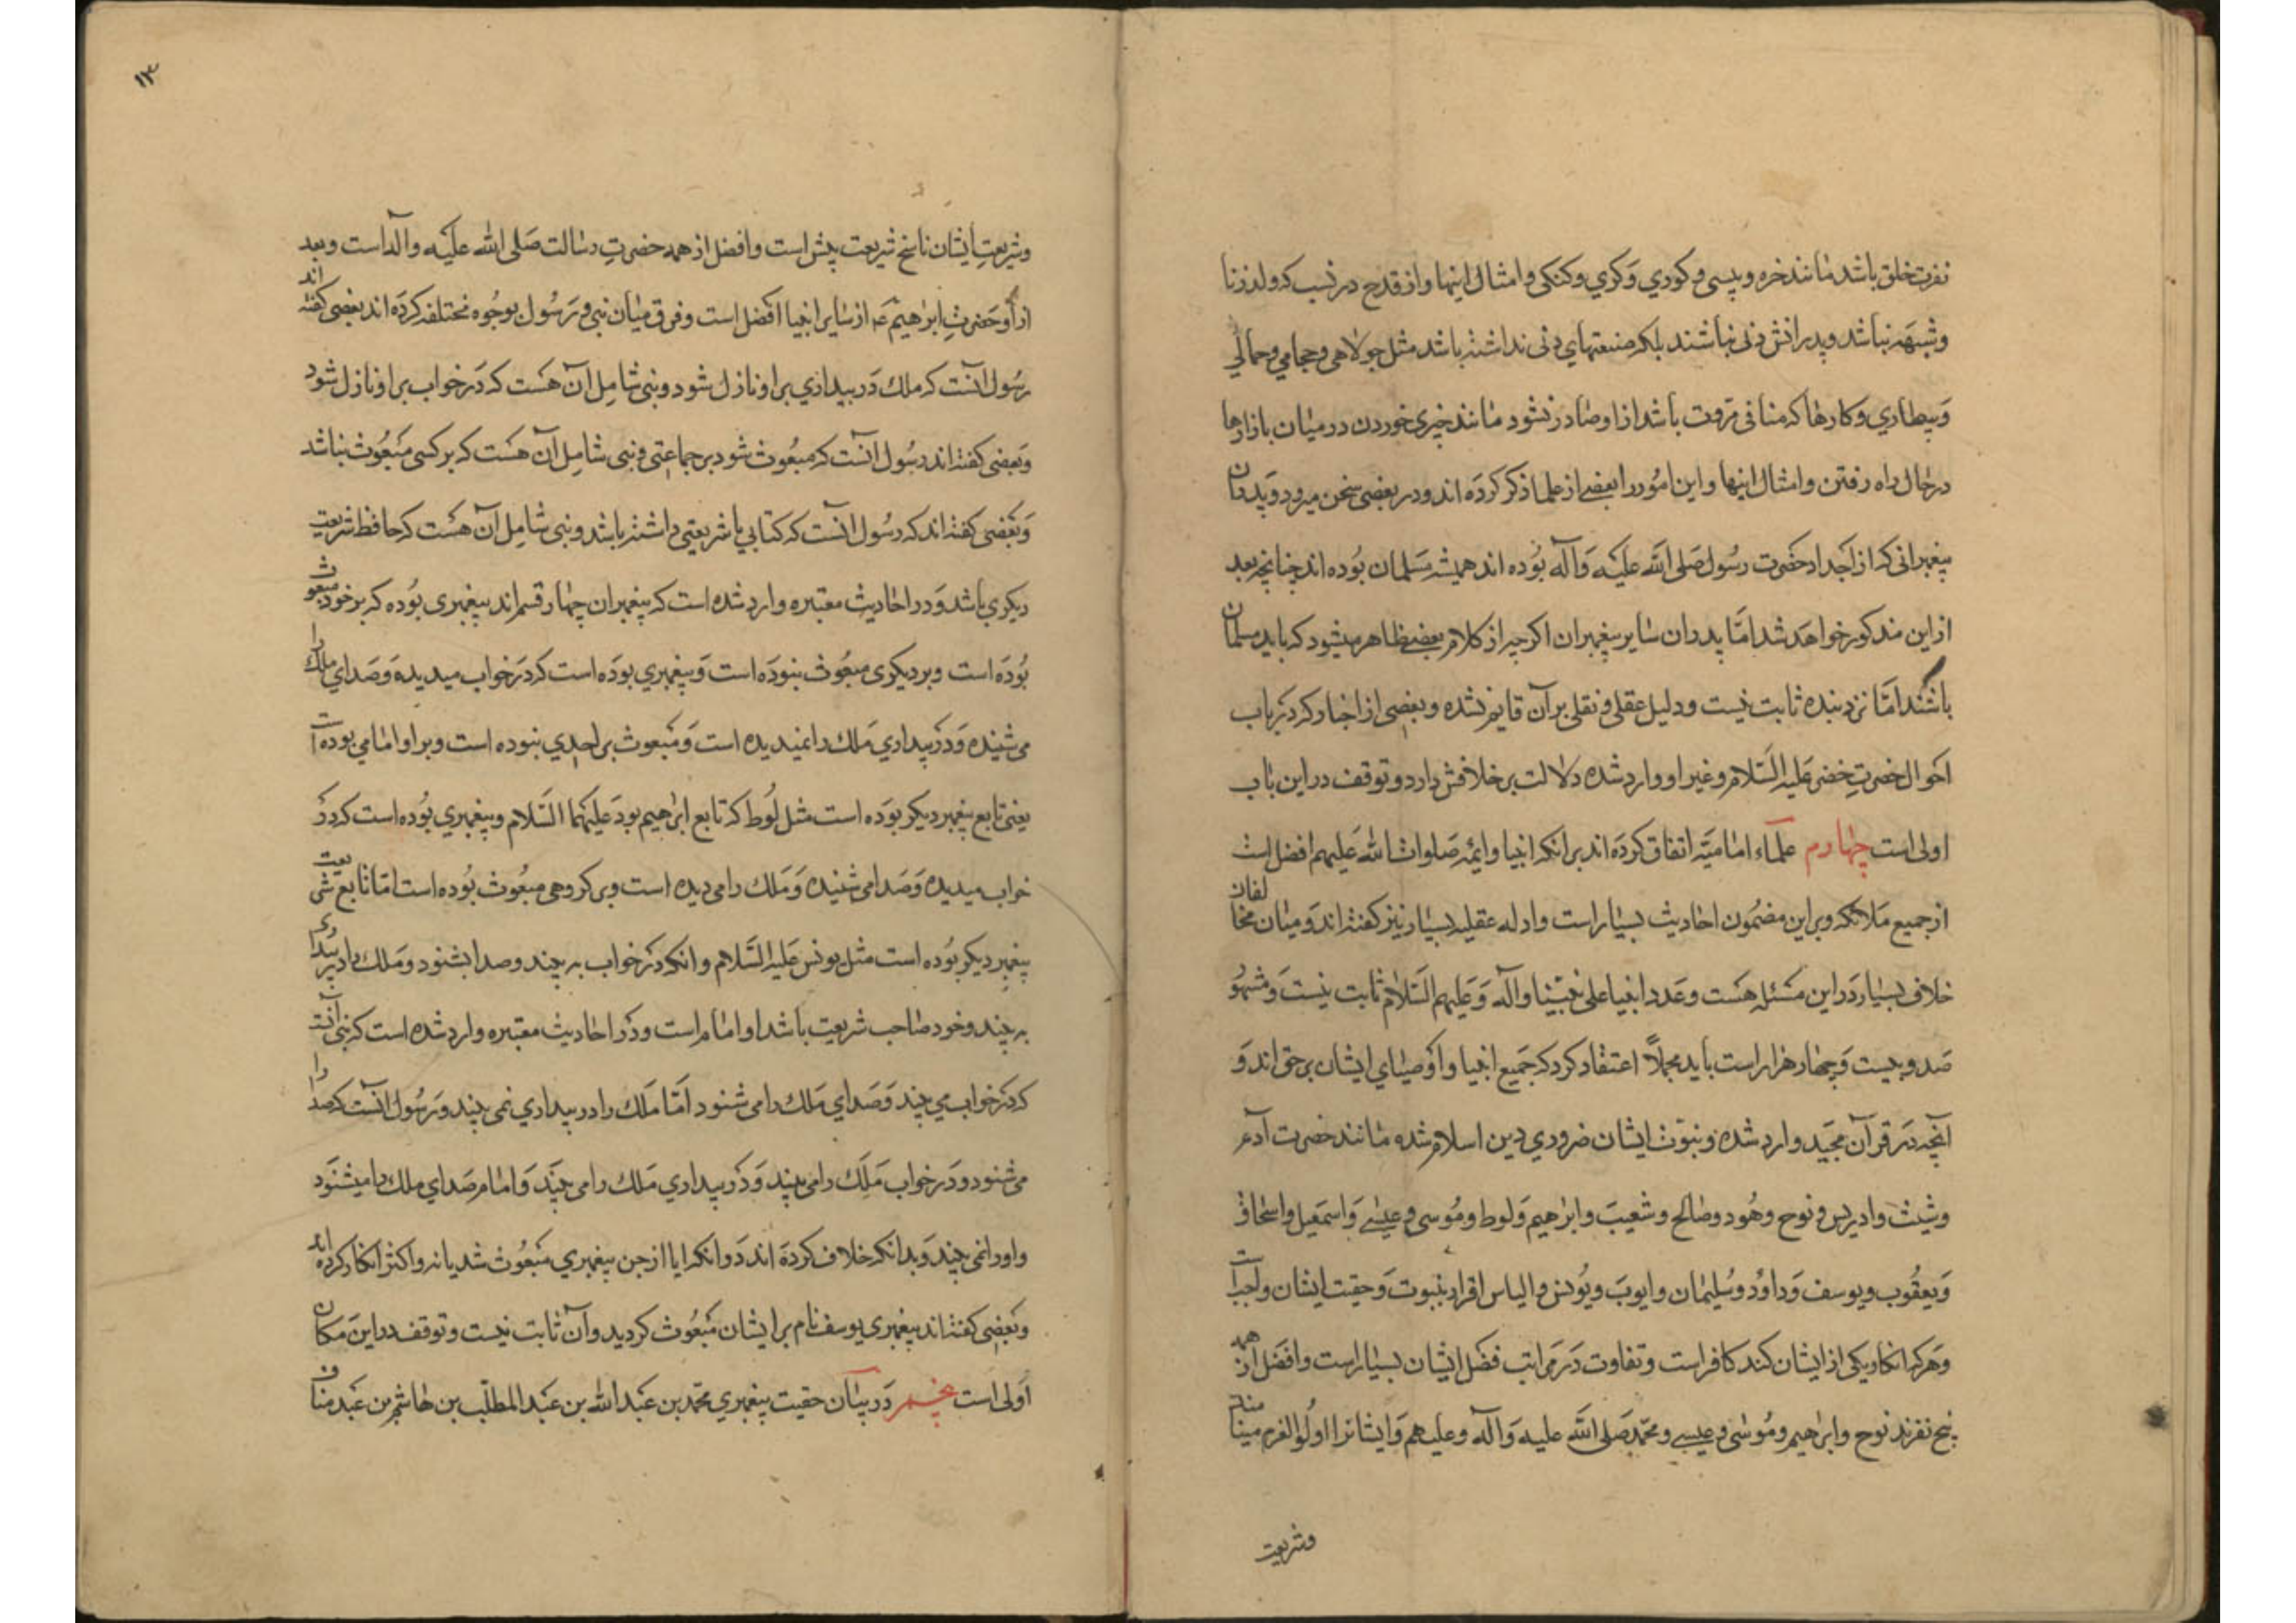 نفرت خلق باشد مانند خره و پیسی و کوری و کری و کنکی و امثال اینها و از قدح در نسب که ولد زنا
و شبهه نباشد و پدرانش دنی نباشند بلکه صنعتهای دنی نداشته باشد مثل جولاهی و حجامی و حمالی
و بیطاری و کارها که منافی مروت باشد از او صادر نشود مانند چیزی خوردن در میان بازارها
در حال راه رفتن و امثال اینها و این امور را بعضی از علما ذکر کرده اند و در بعضی سخن میرود و پدران
پیغمبرانی که از اجداد حضرت رسول صلی الله علیه و آله بوده اند همیشه مسلمان بوده اند چنانچه بعد
از این مذکور خواهد شد اما پدران سایر پیغمبران اکر چه از کلام بعضی ظاهر میشود که باید مسلمان
باشند اما نزد بنده ثابت نیست و دلیل عقلی و نقلی بر آن قایم نشده و بعضی از اخبار که در باب
احوال حضرت خضر علیه السلام و غیر او وارد شده دلالت بر خلافش دارد و توقف در این باب
اولی است چهارم علماء امامیه اتفاق کرده اند بر انکه انبیا و ایمه صلوات الله علیهم افضل است
از جمیع ملائکه و بر این مضمون احادیث بسیار است و ادله عقلیه بسیار نیز کفته اند و میان مخالفان
خلاف بسیار در این مسئله هست و عدد انبیا علی نبینا و آله و علیهم السلام ثابت نیست و مشهور
صد و بیست و چهار هزار است باید مجملاً اعتقاد کرد که جمیع انبیا و اوصیای ایشان بر حق اند و
آنچه در قرآن مجید وارد شده و نبوت ایشان ضروری دین اسلام شده مانند حضرت آدم
و شیث و ادریس و نوح و هود و صالح و شعیب و ابراهیم و لوط و موسی و عیسی و اسمعیل و اسحاق
و یعقوب و یوسف و داود و سلیمان و ایوب و یونس و الیاس اقرار بنبوت و حقیت ایشان واجبست
و هر که انکار یکی از ایشان کند کافر است و تفاوت در مراتب فضل ایشان بسیار است و افضل از همه
پنج نفرند نوح و ابراهیم و موسی و عیسی و محمد صلی الله علیه و آله و علیهم و ایشانرا اولوالعزم مینامند
و شریعت
۱۳
و شریعت ایشان ناسخ شریعت پیش است و افضل از همه حضرت رسالت صلی الله علیه و آله است و بعد
از او حضرت ابراهیم ع از سایر انبیا افضل است و فرق میان نبی و رسول بوجوه مختلفه کرده اند بعضی کفته اند
رسول آنست که ملک در بیداری بر او نازل شود و نبی شامل آن هست که در خواب بر او نازل شود
و بعضی کفته اند رسول آنست که مبعوث شود بر جماعتی و نبی شامل آن هست که بر کسی مبعوث نباشد
و بعضی کفته اند که رسول آنست که کتابی یا شریعتی داشته باشد و نبی شامل آن هست که حافظ شریعت
دیکری باشد و در احادیث معتبره وارد شده است که پیغمبران چهار قسم اند پیغمبری بوده که بر خود مبعوث
بوده است و بر دیکری مبعوث نبوده است و پیغمبری بوده است که در خواب میدیده و صدای ملک را
می شنیده و در بیداری ملک را نمیدیده است و مبعوث بر احدی نبوده است و بر او امامی بوده است
یعنی تابع پیغمبر دیکر بوده است مثل لوط که تابع ابراهیم بود علیهما السلام و پیغمبری بوده است که در
خواب میدیده و صدا می شنیده و ملک را می دیده است و بر کروهی مبعوث بوده است اما تابع شریعت
پیغمبر دیکر بوده است مثل یونس علیه السلام و انکه در خواب به بیند و صدا بشنود و ملک را در بیداری
به بیند و خود صاحب شریعت باشد او امام است و در احادیث معتبره وارد شده است که نبی آنست
که در خواب می بیند و صدای ملک را می شنود اما ملک را در بیداری نمی بیند و رسول آنست که صدا را
می شنود و در خواب ملک را می بیند و در بیداری ملک را می بیند و امام صدای ملک را میشنود
و او را نمی بیند و بدانکه خلاف کرده اند در انکه ایا از جن پیغمبری مبعوث شد یا نه و اکثر انکار کرده اند
و بعضی کفته اند پیغمبری یوسف نام بر ایشان مبعوث کردید و آن ثابت نیست و توقف در این مکان
اولی است پنجم در بیان حقیت پیغمبری محمد بن عبد الله بن عبد المطلب بن هاشم بن عبد مناف